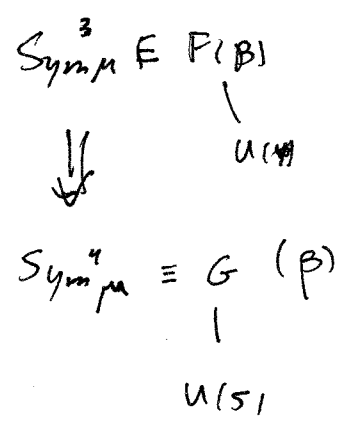 Sym³μ ≡ F(β)
U(4)
Sym⁴μ ≡ G (β)
U(5)